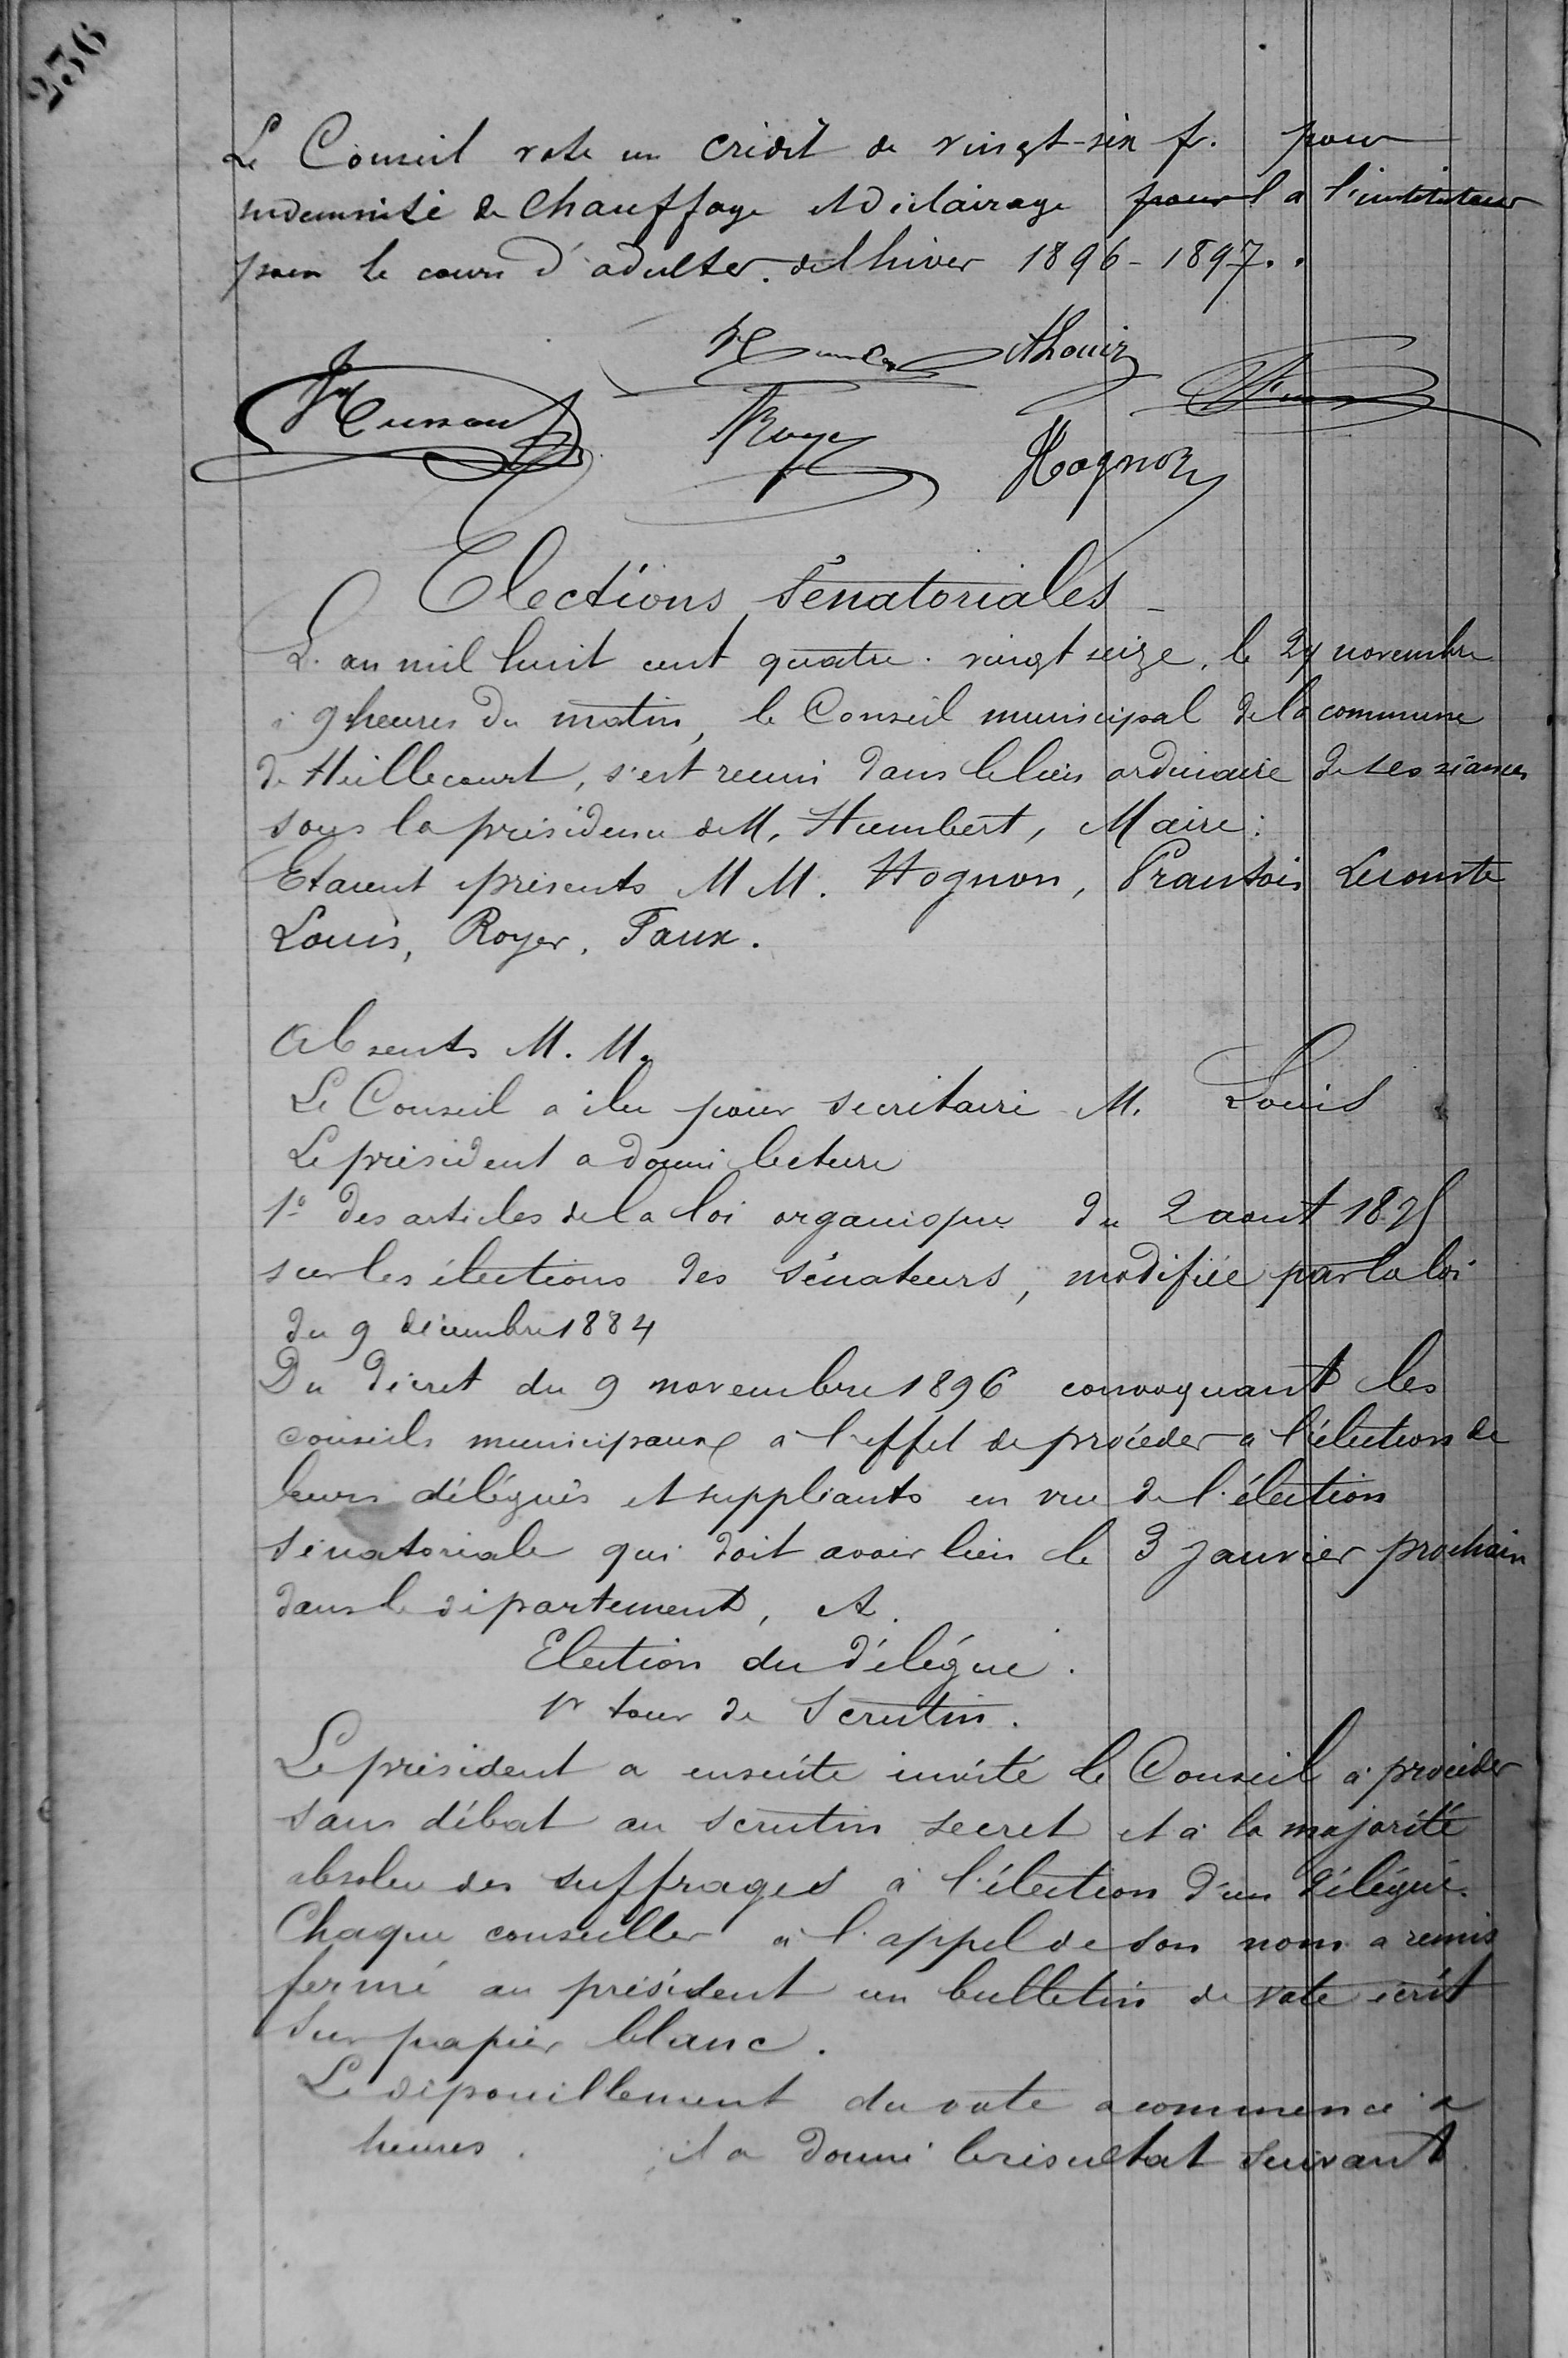 236
Le Conseil vote un crédit de vingt-six f. pour
indemnité de chauffage et d'éclairage pour l à l'instituteur
pour le cours d'adultes. de l'hiver 1896-1897..
Royer Hognon
Elections Sénatoriales
L'an mil huit cent quatre-vingt seize, le 27 novembre
à 9 heures du matin, le Conseil municipal de la commune
de Heillecourt, s'est réuni dans le lieu ordinaire de ses séances
sous la présidence de M. Humbert, Maire:
Etaient présents M M. Hognon, Lecomte
Louis, Royer, Faux.
Absents M. M.
Le Conseil a élu pour secrétaire M. Louis
Le président a donné lecture
1° des articles de la loi organique du 2 aout 1875
sur les élections des Sénateurs, modifiée par la loi
du 9 décembre 1884
Du Décret du 9 novembre 1896 convoquant les
conseils municipaux à l'effet de procéder à l'élection de
leurs délégués et suppléants en vue de l'élection
Sénatoriale qui doit avoir lieu le 3 Janvier prochain
dans le département, et.
Election du Délégué.
1r tour de Scrutin.
Le président a ensuite invité le Conseil à procéder
sans débat au scrutin secret et à la majorité
absolue des suffrages à l'élection d'un Délégué.
Chaque conseiller à l'appel de son nom a remis
fermé au président un bulletin de vote écrit
sur papier blanc.
Le dépouillement du vote a commencé à
heures. il a donné le résultat suivant